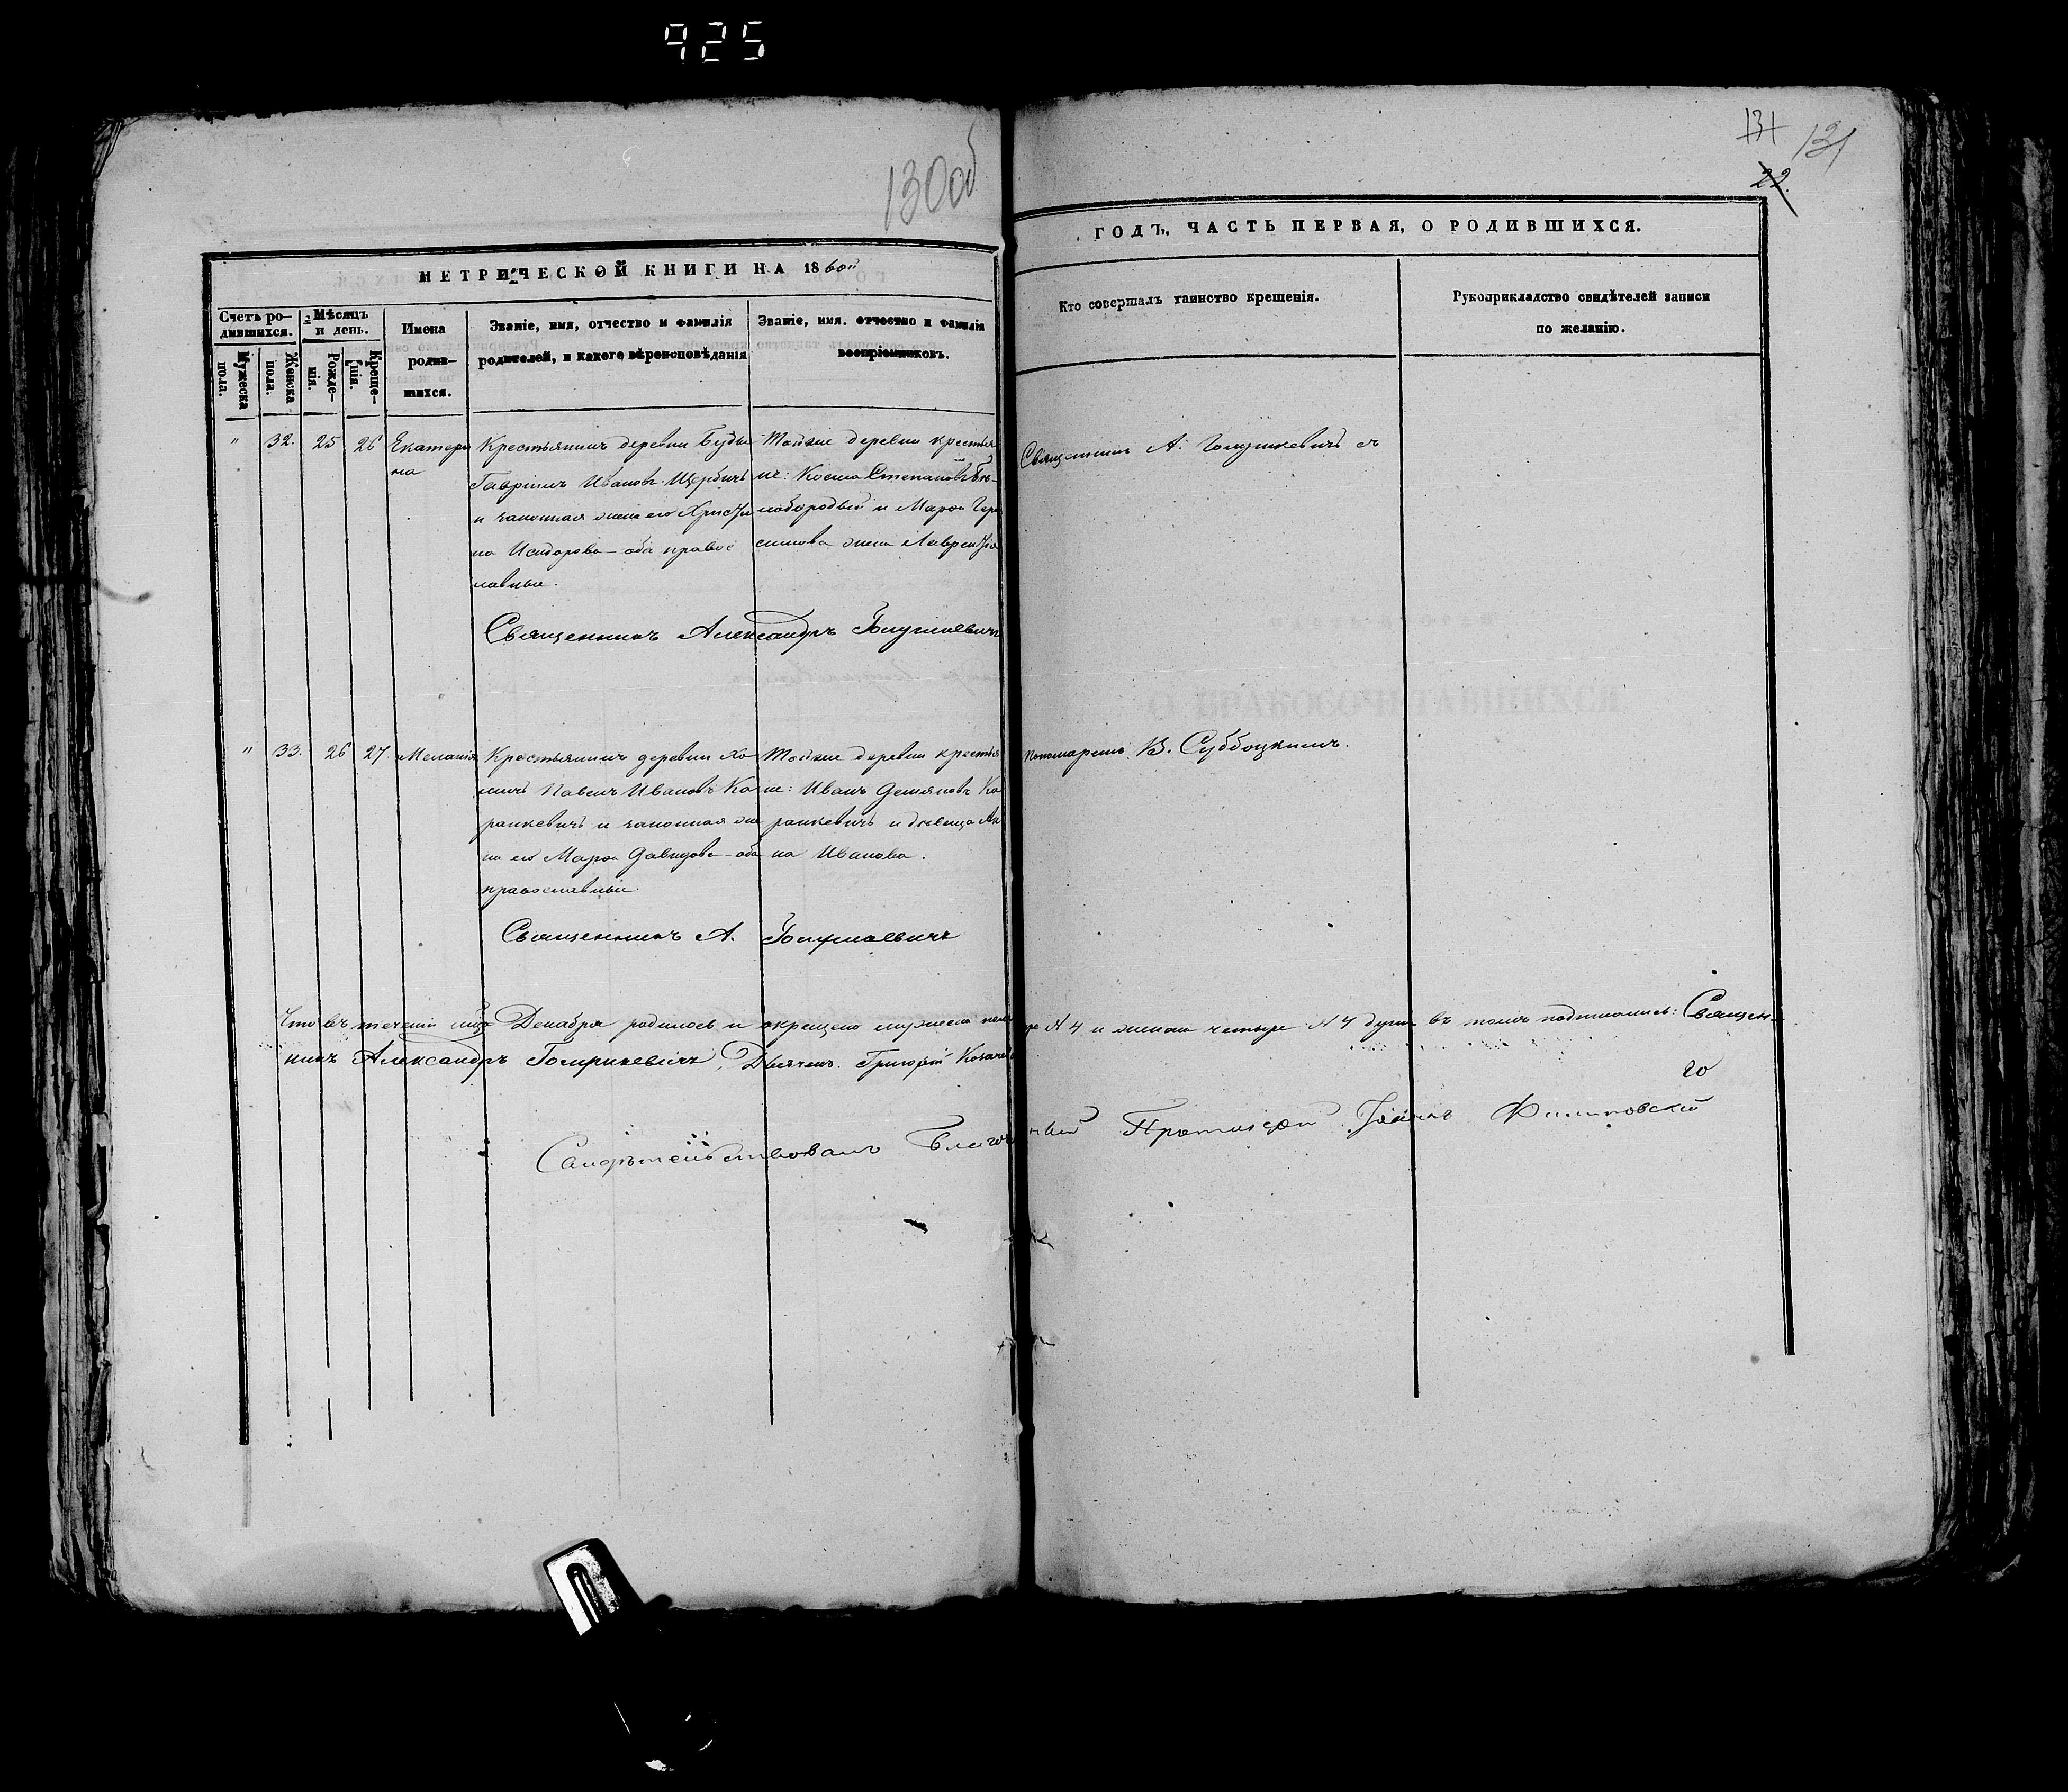 925
130об
131 131
22.
МЕТРИЧЕСКОЙ КНИГИ НА 1860й
ГОДЪ, ЧАСТЬ ПЕРВАЯ, О РОДИВШИХСЯ.
Счетъ ро-
дившихся.
Мужеска
пола.
Женска
пола.
Мѣсяцъ
и день.
Рожде-
нія.
Креще-
нія.
Имена
родив-
шихся.
Званіе, имя, отчество и фамилія
родителей, и какого вѣроисповѣданія
Званіе, имя, отчество и фамилія
воспріемниковъ.
Кто совершалъ таинство крещенія.
Рукоприкладство свидѣтелей записи
по желанію.
" 32. 25 26 Екатери
на
Крестьянинъ деревни Буды
Гавріилъ Ивановъ Щербичъ
и законная жена его Христи
на Исидорова - оба правос
лавные.
Тойже деревни крестья
не: Косма Степановъ Бѣ-
лобородый и Марѳа Гера
симова жена Лаврентія
Священникъ А. Голушкевичъ съ
Священникъ Александръ Голушкевичъ
" 33. 26 27 Меланія
Крестьянинъ деревни Хо
Павелъ Ивановъ Ка
ранкевичъ и законная же
на его Марѳа Давидова - оба
православные.
Тойже деревни крестья
не: Иванъ Демяновъ Ка
ранкевичъ и дѣвица Ан
на Иванова.
Пономаремъ В. Суббоцкимъ.
Священникъ А. Голушкевичъ
Что въ теченіи мца Декабря родилось и окрещено мужеска пола № 4 и женска четыре № 4 душъ въ томъ подписались: Священ-
никъ Александръ Голушкевичъ, Дьячекъ Григорій
Свидѣтельствовалъ Протоіерей Іоаннъ